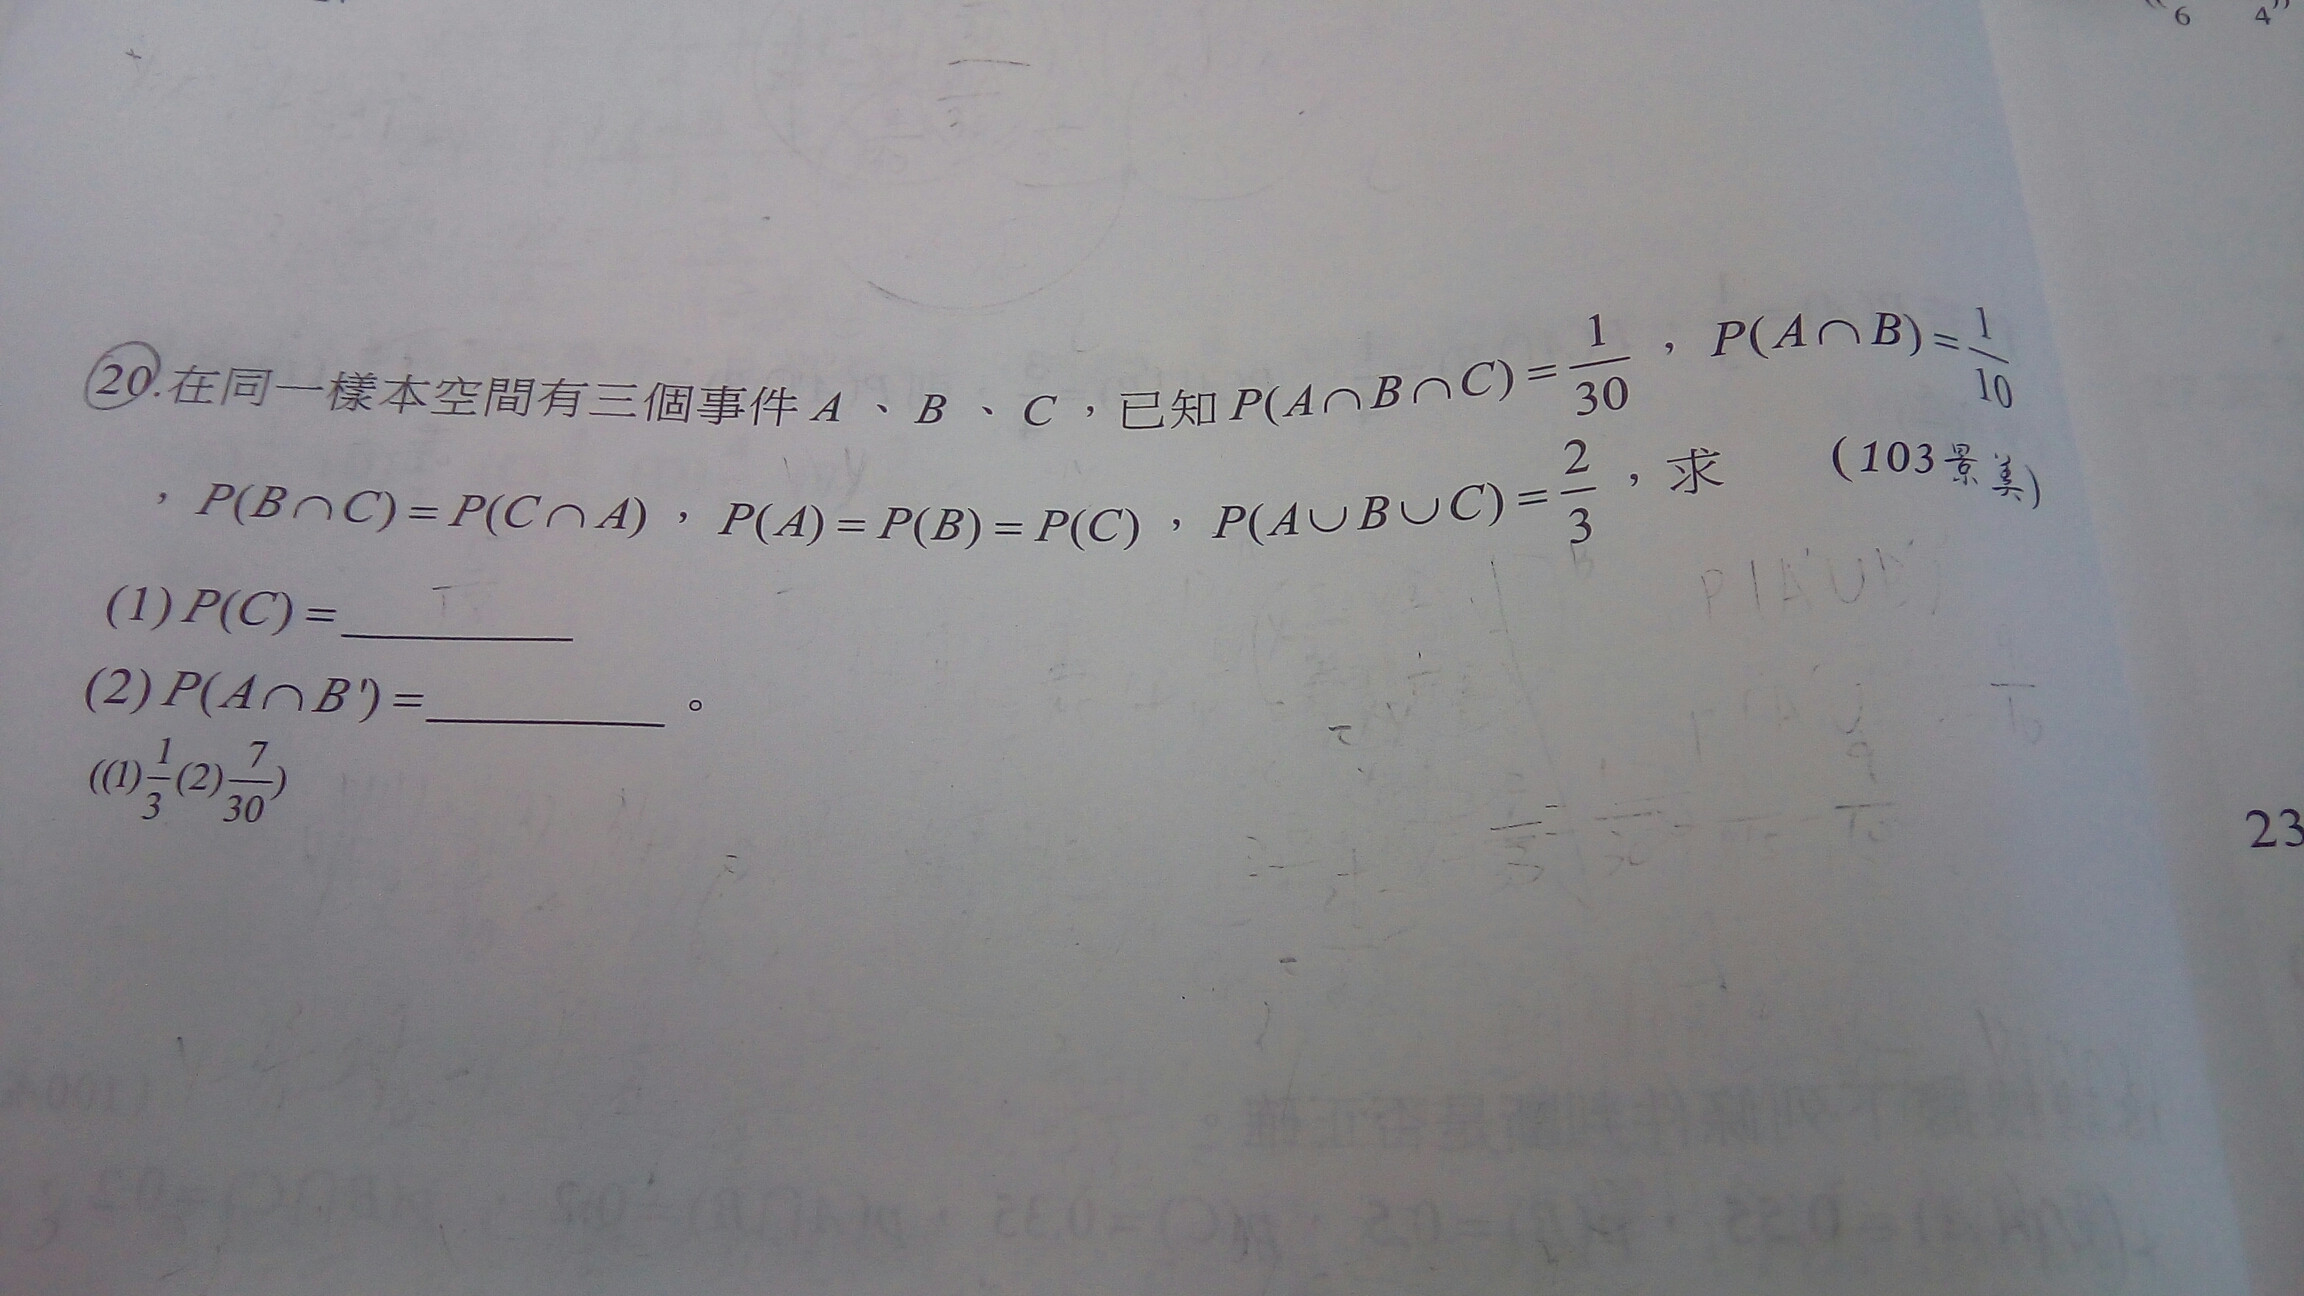 6 4
20.在同一樣本空間有三個事件 A、B、C，已知 P(A∩B∩C)=1/30，P(A∩B)=1/10
，P(B∩C)=P(C∩A)，P(A)=P(B)=P(C)，P(A∪B∪C)=2/3，求 (103景美)
(1) P(C)=
(2) P(A∩B')= 。
((1)1/3(2)7/30)
23